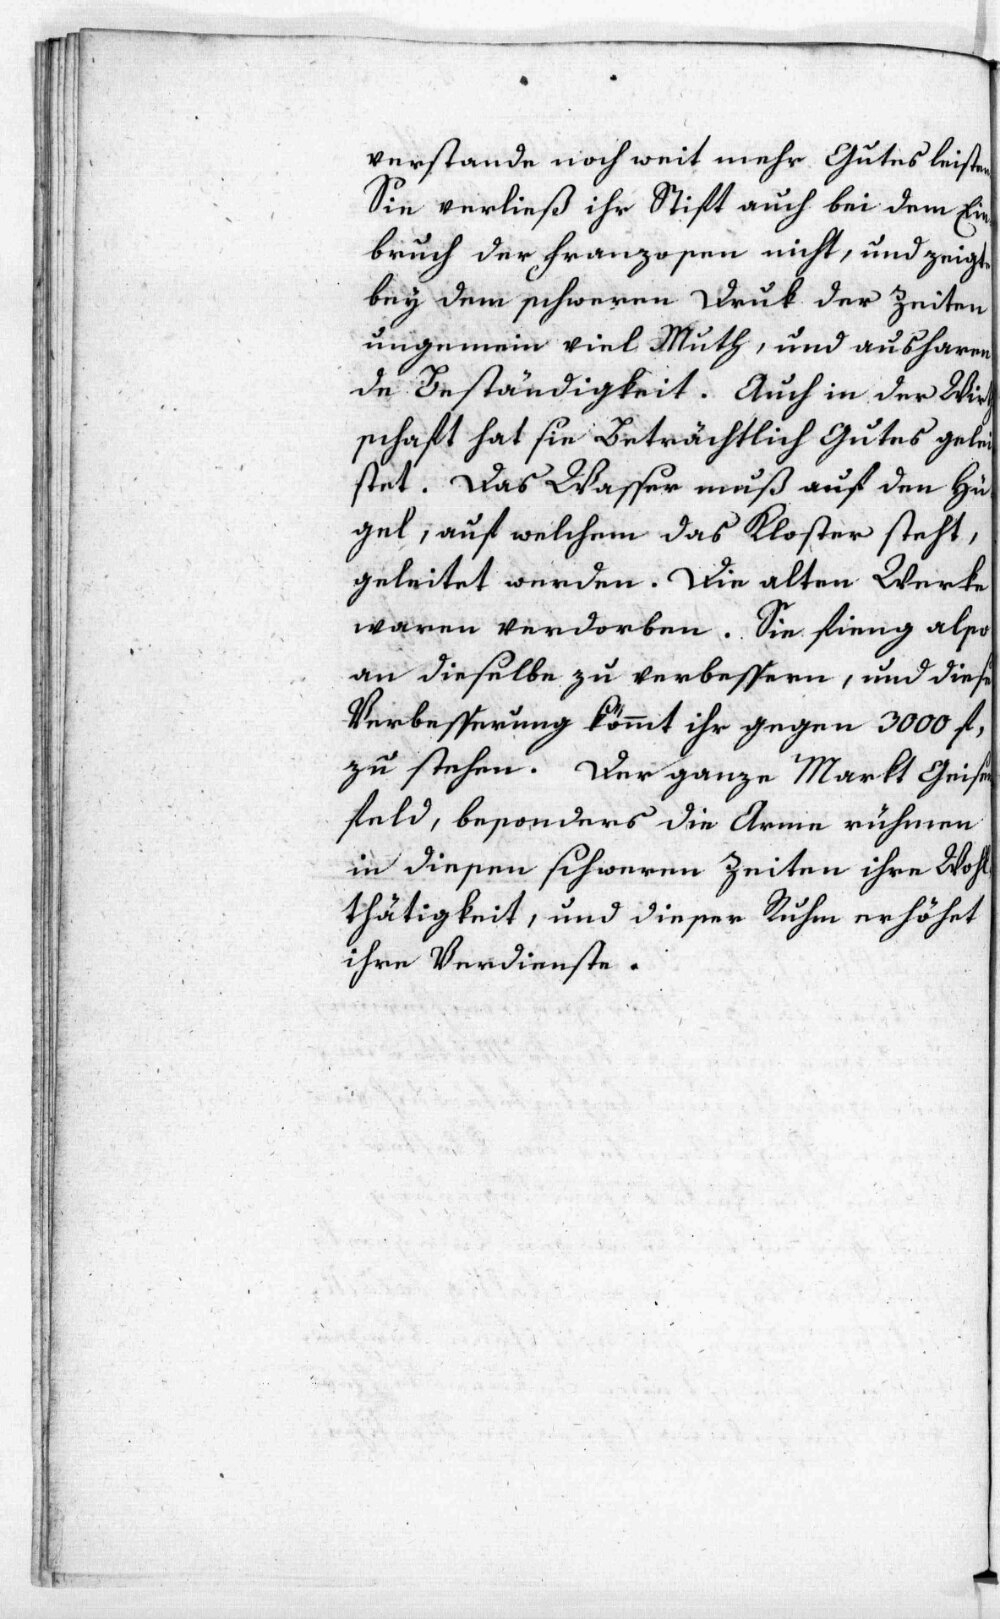 verstande noch weit mehr Gutes leisten
Sie verließ ihr Stift auch bei dem Ein
bruch der franzosen nicht, und zeigte
bey dem schweren Druk der Zeiten
ungemein viel Muth, und ausharen
de Beständigkeit. Auch in der Wirth
schaft hat sie Beträchtlich Gutes gelei
stet. Das Wasser muß auf den Hü
gel, auf welchem das Kloster steht,
geleitet werden. Die alten Werke
waren verdorben. Sie fieng also
an dieselbe zu verbessern, und diese
Verbesserung kom̄t ihr gegen 3000 f,
zu stehen. Der ganze Markt Geisen
feld, besonders die Arme rühmen
in diesen schweren Zeiten ihre Wohl
thätigkeit, und dieser Ruhm erhöhet
ihre Verdienste.